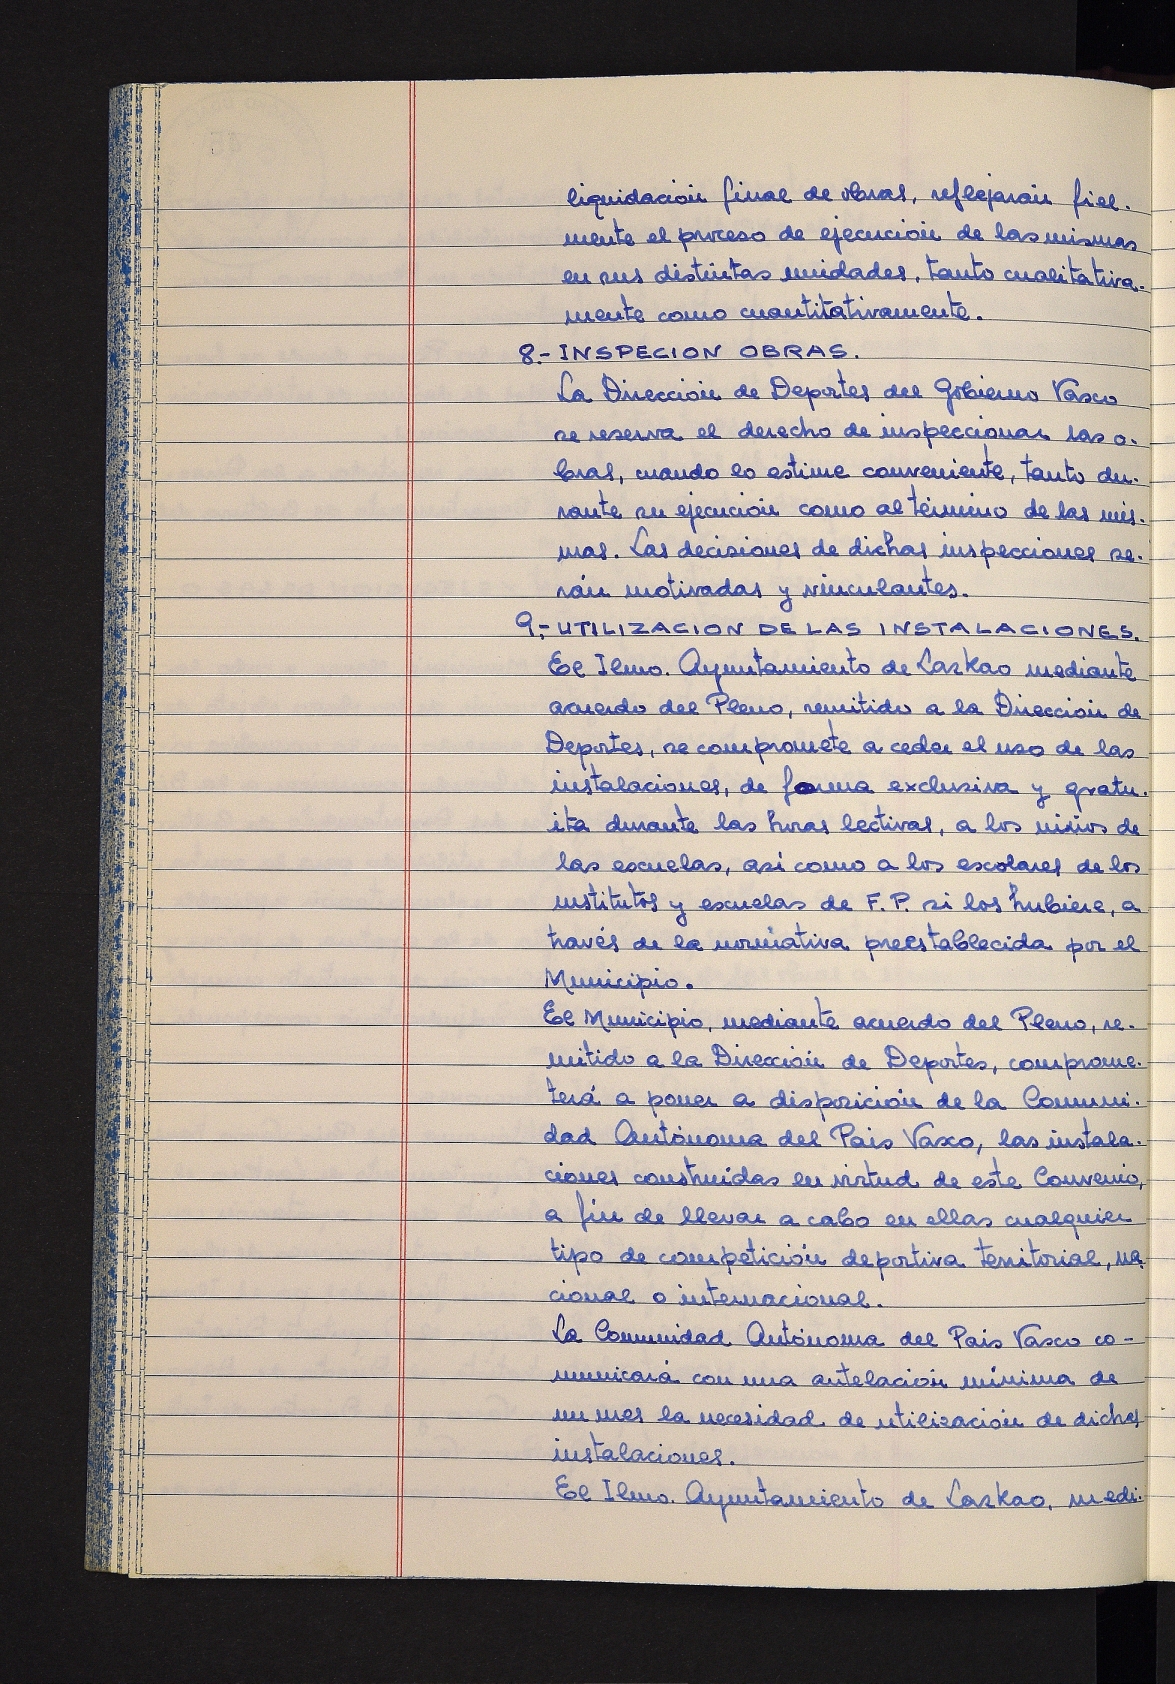 liquidación final de obras, reflejarán fiel-
mente el proceso de ejecución de las mismas
en sus distintas unidades, tanto cualitativa-
mente como cuantitativamente.
8.- INSPECION OBRAS.
La Dirección de Deportes del Gobierno Vasco
se reserva el derecho de inspeccionar las o-
bras, cuando lo estime conveniente, tanto du-
rante su ejecución como al término de las mis-
mas. Las decisiones de dichas inspecciones se-
rán motivadas y vinculantes.
9.- UTILIZACION DE LAS INSTALACIONES.
El Ilmo. Ayuntamiento de Lazkao mediante
acuerdo del Pleno, remitido a la Dirección de
Deportes, se compromete a ceder el uso de las
instalaciones, de forma exclusiva y gratu-
ita durante las horas lectivas, a los niños de
las escuelas, así como a los escolares de los
institutos y escuelas de F.P. si los hubiere, a
través de la normativa preestablecida por el
Municipio.
El Municipio, mediante acuerdo del Pleno, re-
mitido a la Dirección de Deportes, comprome-
terá a poner a disposición de la Comuni-
dad Autónoma del Pais Vasco, las instala-
ciones construidas en virtud de este Convenio,
a fin de llevar a cabo en ellas cualquier
tipo de competición deportiva territorial, na-
cional o internacional.
La Comunidad Autónoma del Pais Vasco co-
municará con una antelación mínima de
un mes la necesidad de utilización de dichas
instalaciones.
El Ilmo. Ayuntamiento de Lazkao, medi-